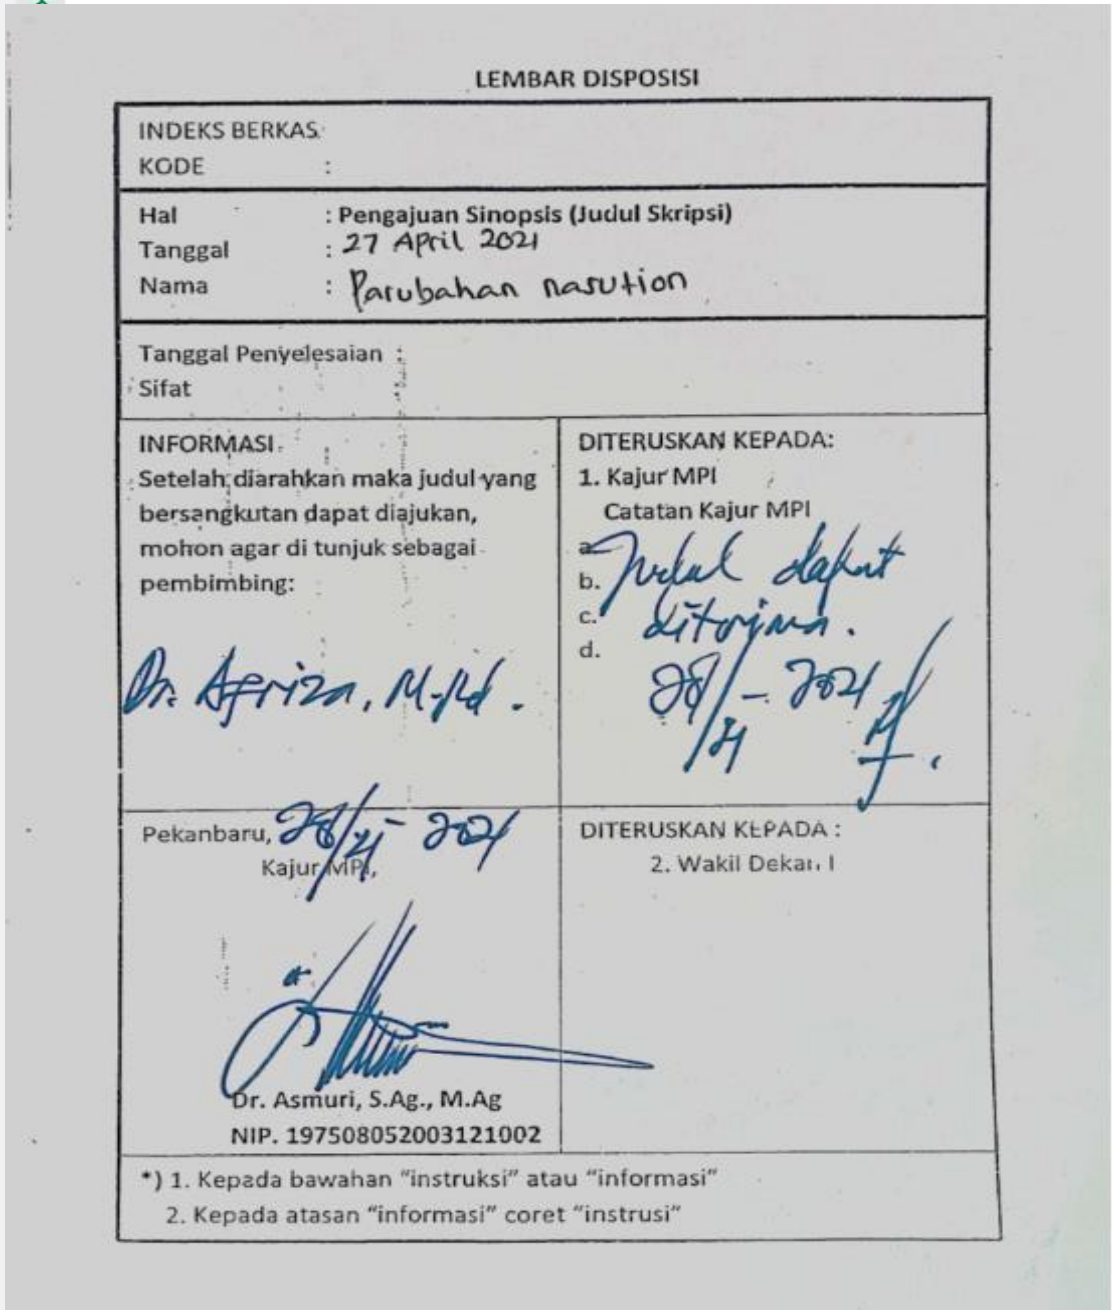 LEMBAR DISPOSISI
INDEKS BERKAS:
KODE :
Hal : Pengajuan Sinopsis (Judul Skripsi)
Tanggal : 27 April 2021
Nama : Parubahan nasution
Tanggal Penyelesaian :
Sifat :
INFORMASI:
Setelah diarahkan maka judul yang
bersangkutan dapat diajukan,
mohon agar di tunjuk sebagai
pembimbing:
Dr. Afriza, M.Pd.
DITERUSKAN KEPADA:
1. Kajur MPI
Catatan Kajur MPI
a. Judul dapat
b.
c. diterima.
d.
28/ - 2021
Pekanbaru, 28/ - 2021
Kajur MPI,
Dr. Asmuri, S.Ag., M.Ag
NIP. 197508052003121002
DITERUSKAN KEPADA :
2. Wakil Dekan I
*) 1. Kepada bawahan "instruksi" atau "informasi"
2. Kepada atasan "informasi" coret "instrusi"